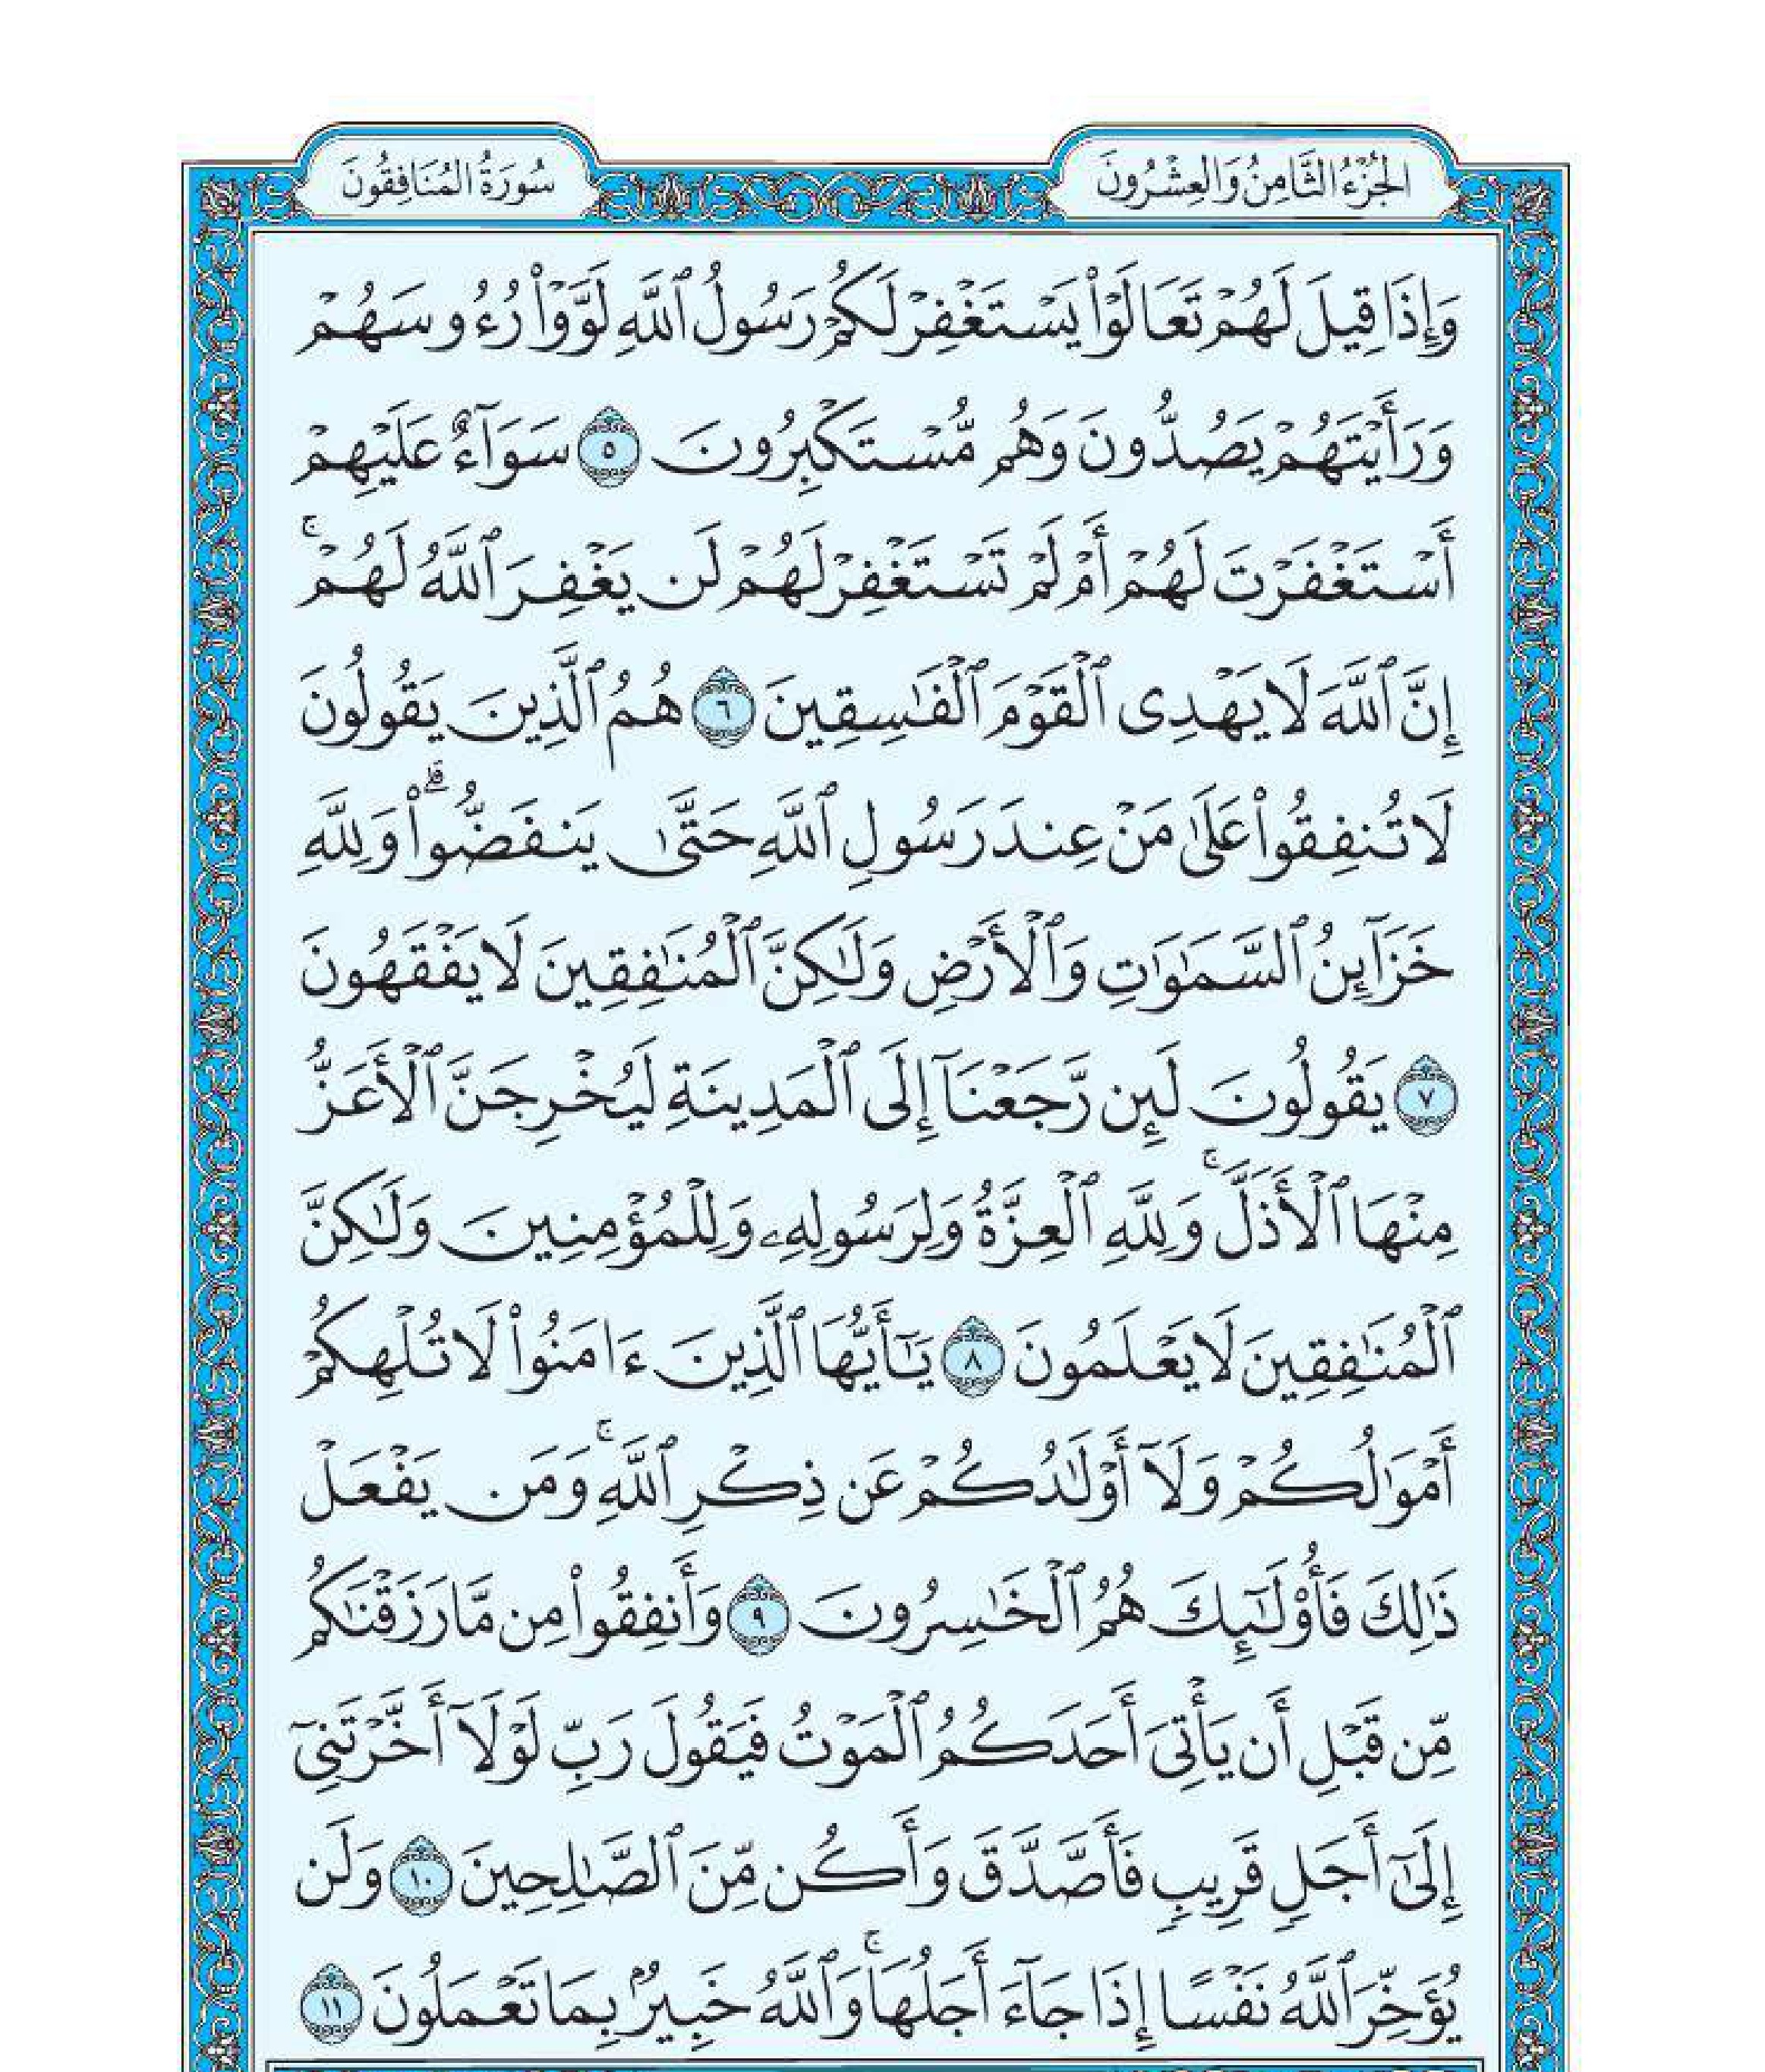 الجُزْءُ الثَّامِنُ وَالعِشْرُونَ
سُورَةُ المُنَافِقُونَ
وَإِذَا قِيلَ لَهُمْ تَعَالَوْا۟ يَسْتَغْفِرْ لَكُمْ رَسُولُ ٱللَّهِ لَوَّوْا۟ رُءُوسَهُمْ
وَرَأَيْتَهُمْ يَصُدُّونَ وَهُم مُّسْتَكْبِرُونَ ٥ سَوَآءٌ عَلَيْهِمْ
أَسْتَغْفَرْتَ لَهُمْ أَمْ لَمْ تَسْتَغْفِرْ لَهُمْ لَن يَغْفِرَ ٱللَّهُ لَهُمْ ۚ
إِنَّ ٱللَّهَ لَا يَهْدِى ٱلْقَوْمَ ٱلْفَـٰسِقِينَ ٦ هُمُ ٱلَّذِينَ يَقُولُونَ
لَا تُنفِقُوا۟ عَلَىٰ مَنْ عِندَ رَسُولِ ٱللَّهِ حَتَّىٰ يَنفَضُّوا۟ ۗ وَلِلَّهِ
خَزَآئِنُ ٱلسَّمَـٰوَٰتِ وَٱلْأَرْضِ وَلَـٰكِنَّ ٱلْمُنَـٰفِقِينَ لَا يَفْقَهُونَ
٧ يَقُولُونَ لَئِن رَّجَعْنَآ إِلَى ٱلْمَدِينَةِ لَيُخْرِجَنَّ ٱلْأَعَزُّ
مِنْهَا ٱلْأَذَلَّ ۚ وَلِلَّهِ ٱلْعِزَّةُ وَلِرَسُولِهِۦ وَلِلْمُؤْمِنِينَ وَلَـٰكِنَّ
ٱلْمُنَـٰفِقِينَ لَا يَعْلَمُونَ ٨ يَـٰٓأَيُّهَا ٱلَّذِينَ ءَامَنُوا۟ لَا تُلْهِكُمْ
أَمْوَٰلُكُمْ وَلَآ أَوْلَـٰدُكُمْ عَن ذِكْرِ ٱللَّهِ ۚ وَمَن يَفْعَلْ
ذَٰلِكَ فَأُو۟لَـٰٓئِكَ هُمُ ٱلْخَـٰسِرُونَ ٩ وَأَنفِقُوا۟ مِن مَّا رَزَقْنَـٰكُم
مِّن قَبْلِ أَن يَأْتِىَ أَحَدَكُمُ ٱلْمَوْتُ فَيَقُولَ رَبِّ لَوْلَآ أَخَّرْتَنِىٓ
إِلَىٰٓ أَجَلٍ قَرِيبٍ فَأَصَّدَّقَ وَأَكُن مِّنَ ٱلصَّـٰلِحِينَ ١٠ وَلَن
يُؤَخِّرَ ٱللَّهُ نَفْسًا إِذَا جَآءَ أَجَلُهَا ۚ وَٱللَّهُ خَبِيرٌۢ بِمَا تَعْمَلُونَ ١١